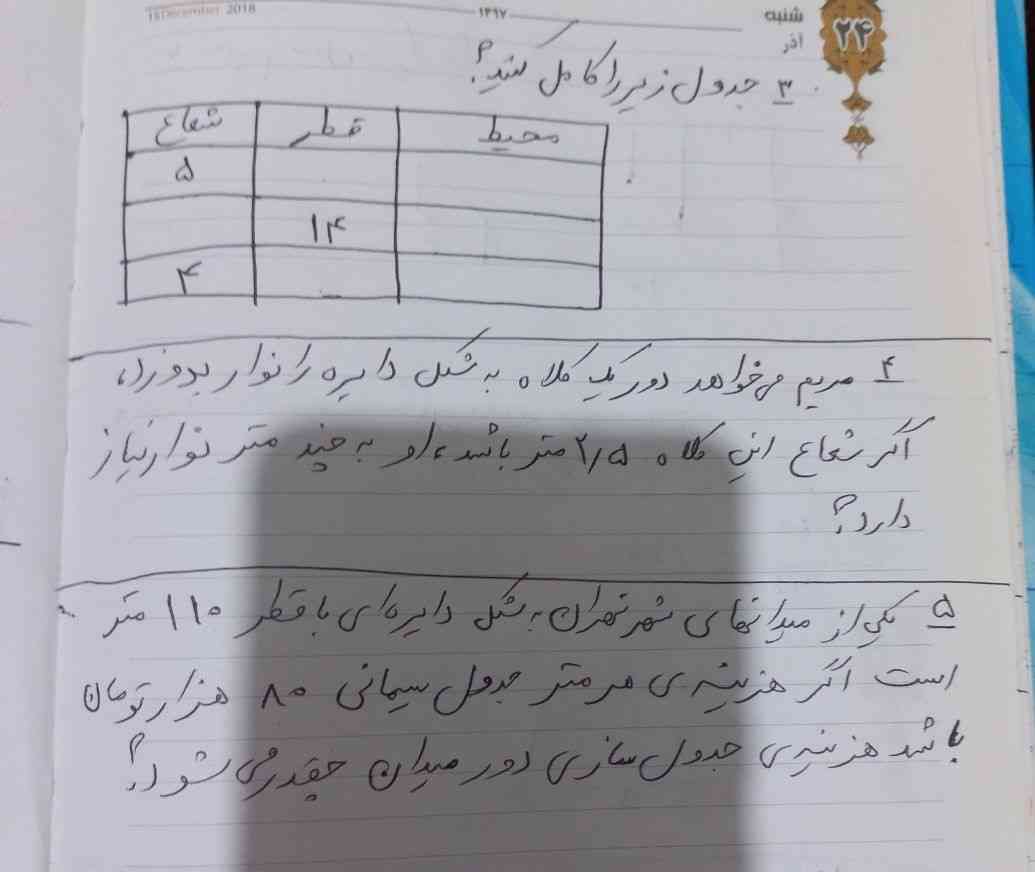 15December 2018
۱۳۹۷
شنبه
۲۴
آذر
۳ جدول زیر را کامل کنید؟
شعاع قطر محیط
۵
۱۴
۴
۴ مریم می‌خواهد دور یک کلاه به شکل دایره را نوار بدوزد،
اگر شعاع این کلاه ۲/۵ متر باشد، او به چند متر نوار نیاز
دارد؟
۵ یکی از میدانهای شهر تهران به شکل دایره‌ای با قطر ۱۱۰ متر
است اگر هزینه‌ی هر متر جدول سیمانی ۸۰ هزار تومان
باشد هزینه‌ی جدول سازی دور میدان چقدر می‌شود؟